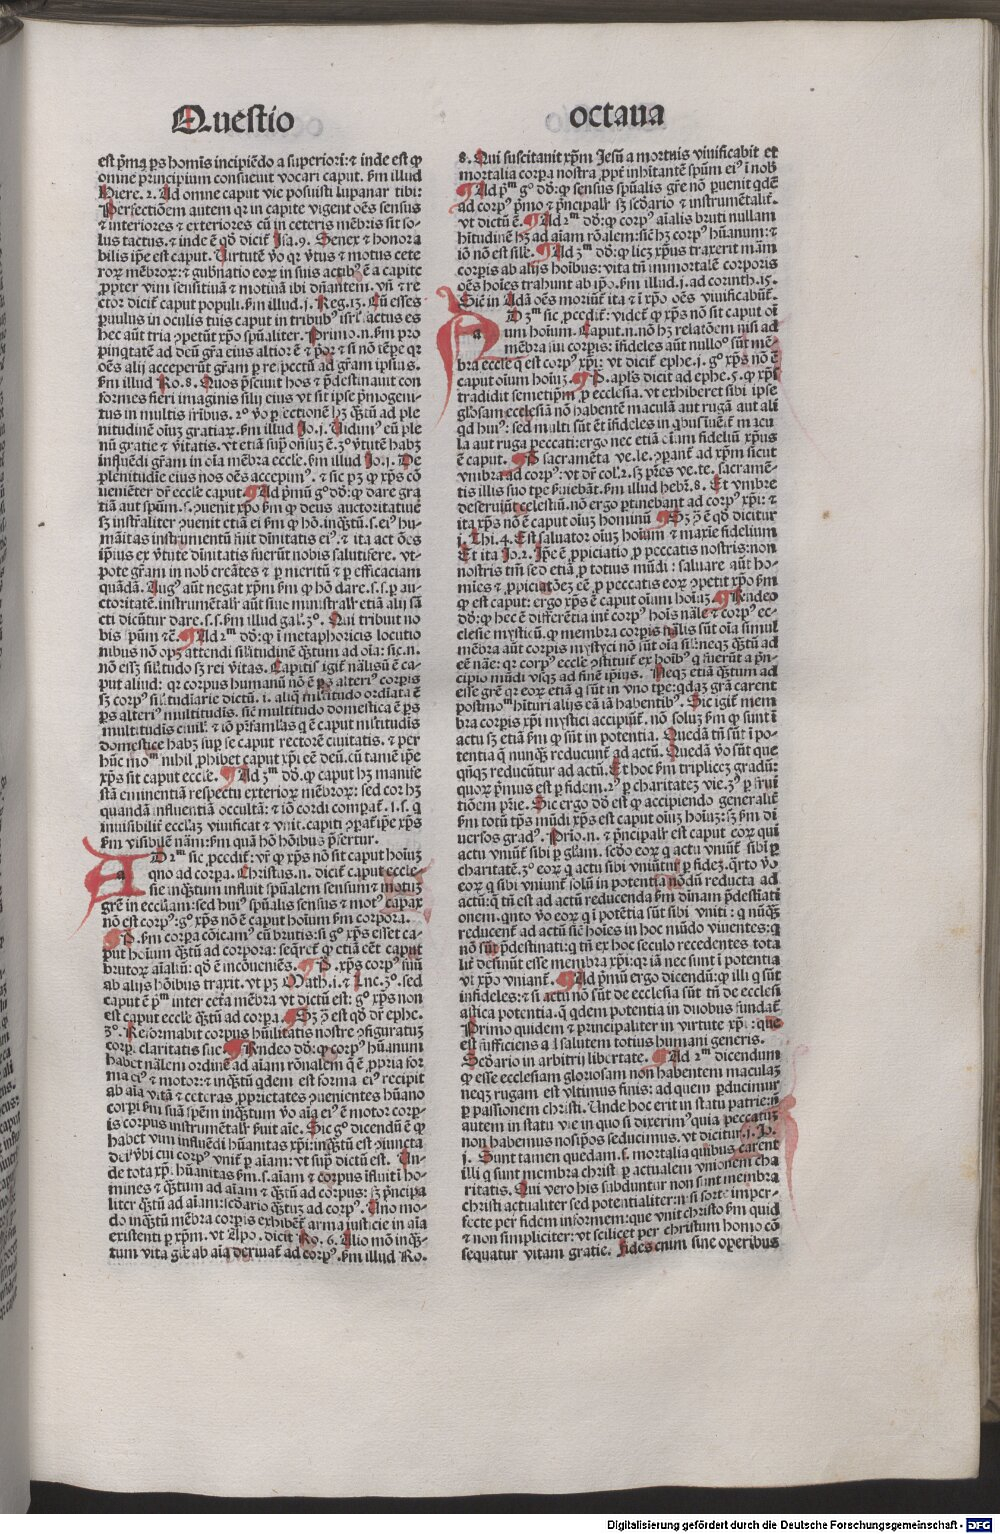 Questio
est p̄ma ps homīs incipiēdo a superiori: ⁊ inde est qͥ
omne principium consueuit vocari caput. ẜm illud
Hiere. 2. Ad omne caput vie posuisti lupanar tibi:
Perfectiōem autem qꝛ in capite vigent oēs sensus
⁊ interiores ⁊ exteriores cū in ceteris mēbris sit so-
lus tactus. ⁊ inde ē qd̄ dicit̄ Isa. 9. Senex ⁊ honora
bilis ip̄e est caput. Uirtutē v̄o qꝛ v̄tus ⁊ motus cete
roꝝ mēbroꝝ: ⁊ gubnatio eoꝝ in suis actibꝰ ē a capite
ꝓpter vim sensitiuā ⁊ motiuā ibi dn̄antem. vn̄ ⁊ re
ctor dicit̄ caput populi. ẜm illud .j. Reg. 15. Cū esses
ꝑuulus in oculis tuis caput in tribubꝰ isrl̄ factus es
hec aūt tria ↄpetūt xp̄o spūaliter. Primo .n. ẜm pro
pinq̄tatē ad deū gr̄a eius altior ē ⁊ p̄oꝛ ⁊ si nō tēpe qꝛ
oēs alij acceperūt gr̄am ꝑ respectū ad gr̄am ipsius.
ẜm illud Ro. 8. Quos p̄sciuit hos ⁊ p̄destinauit con
formes fieri imaginis filij eius vt sit ipse p̄mogeni-
tus in multis fr̄ibus. 2ͦ v̄o ꝑfectionē hꝫ q̄ꝫtū ad ple
nitudinē oiuꝫ gratiaꝝ. ẜm illud Jo. j. Uidimꝰ eū ple
nū gratie ⁊ v̄itatis. vt etiā sup̄ on̄suꝫ ē. 3ͦ v̄tutē habꝫ
influēdi gr̄am in oīa mēbra eccle. ẜm illud Jo. j. De
plenitudīe eius nos oēs accepimꝰ. ⁊ sic pꝫ qͥ xp̄s cō
ueniēter dr̄ eccle caput. Ad p̄mū gͦ dd̄: qͥ dare gra
tiā aut spūm .s. ↄuenit xp̄o ẜm qͥ deus auctoritatiue
sꝫ instr̄aliter ↄuenit etiā ei ẜm qͥ hō. inq̄ꝫtū .s. eiꝰ hu-
māitas instrumentū fuit diuinitatis eiꝰ. ⁊ ita act oēs
ip̄ius ex v̄tute diuinitatis fuerūt nobis salutifere. vt-
pote gr̄am in nob̄ creātes ⁊ ꝑ meritū ⁊ ꝑ efficaciam
quādā. Augꝰ aūt negat xp̄m ẜm qͥ hō dare .s.s. ꝑ au-
ctoritatē. instrumētalr̄ aūt siue ministralr̄ etiā alij sā
cti dicūtur dare .s.s. ẜm illud gal̄. 3ͦ. Qui tribuit no
bis spūm ⁊c̄. Ad 2ᵐ dd̄: qͥ i metaphoricis locutio
nibus nō opꝫ attendi sil̄itudinē q̄ꝫtum ad oīa: sic .n.
nō essꝫ sil̄itudo sꝫ rei v̄itas. Capitis igit̄ nālisū ē ca-
put aliud: qꝛ corpus humanū nō ē ps alteriꝰ corpis
sꝫ corpꝰ sil̄itudiarie dictū .i. aliq̄ multitudo ordiata ē
ps alteriꝰ multitudis. sic̄ multitudo domestica ē ps
multitudis ciuil̄. ⁊ iō pr̄familias q̄ ē caput mltitudis
domestice habꝫ sup se caput rectorē ciuitatis. ⁊ per
hūc moᵐ nihil ꝓhibet caput xp̄i eē deū. cū tamē ip̄e
xp̄s sit caput eccle. Ad 3ᵐ dd̄. qͥ caput hꝫ manife
stā eminentiā respectu exterioꝝ mēbroꝝ: sed cor hꝫ
quandā influentiā occultā: ⁊ iō cordi compat̄ .s.s. q
inuisibilit̄ ecclaꝫ viuificat ⁊ vnit. capiti ↄpat̄ ip̄e xp̄s
ẜm visibilē nām: ẜm quā hō hōibus p̄fertur.
AD 2ᵐ sic ꝓcedit̄: vr̄ qͥ xp̄s nō sit caput hoiuꝫ
qno ad corpa. Christus .n. dicit̄ caput eccle
sie inq̄ꝫtum influit spūalem sensum ⁊ motuꝫ
grē in eccl̄iam: sed huiꝰ spūalis sensus ⁊ motꝰ capax
nō est corpꝰ: gͦ xp̄s nō ē caput hoium ẜm corpora.
P. ẜm corpa cōicamꝰ cū brutis: si gͦ xp̄s esset ca-
put hoium q̄ꝫtum ad corpora: seq̄ret̄ qͥ etiā eēt caput
brutoꝝ aialiū: qd̄ ē incōueniēs. P. xp̄s corpꝰ suū
ab alijs hōibus traxit. vt pꝫ Math. i. ⁊ Luc. 3ͦ. sed
caput ē pᵐ inter cetera mēbra vt dictū est: gͦ xp̄s non
est caput eccle q̄ꝫtū ad corpa. Sꝫ ↄ̄ est qd̄ dr̄ ephe.
3ͦ. Reformabit corpus hūilitatis nostre ↄfiguratuꝫ
corpi claritatis sue. Rn̄deo dd̄: qͥ corpꝰ hūanum
habet nālem ordinē ad aiam rōnalem q̄ ē ꝓpria for
ma eiꝰ ⁊ motor: ⁊ inq̄ꝫtū qdem est forma eiꝰ recipit
ab aīa vitā ⁊ ceteras ꝓprietates ↄuenientes hūano
corpi ẜm suā spēm inq̄ꝫtum v̄o aīa eiꝰ ē motor corp-
is corpus instrumētalr̄ ẜuit aīe. Sic gͦ dicendū ē qͥ
habet vim influēdi hūanitas xp̄i: inq̄ꝫtū est ↄiuncta
dei v̄bi cui corpꝰ vnit̄ ꝑ aīam: vt sup̄ dictū est. Un-
de tota xp̄i hūanitas ẜm .s. aīam ⁊ corpus īfluit i ho
mines ⁊ q̄ꝫtum ad aīam ⁊ q̄ꝫtū ad corpus: sꝫ p̄ncipa
liter q̄ꝫtū ad aīam: sc̄dario q̄ꝫtuꝫ ad corpꝰ. Uno mo-
do inq̄ꝫtū mēbra corpis exhibēt̄ arma iusticie in aīa
existenti ꝑ xp̄m. vt Apo. dicit Ro. 6. Alio mō inq̄ꝫ-
tum vita gl̄e ab aīa deriuat̄ ad corpꝰ. ẜm illud Ro.
octaua
8. Qui suscitauit xp̄m Jesū a mortuis viuificabit et
mortalia corpa nostra ꝓpt̄ inhitantē spūm eiꝰ i nob̄
Ad pᵐ gͦ dd̄: qͥ sensus spūalis grē nō ꝑuenit qdē
ad corpꝰ p̄mo ⁊ p̄ncipalr̄ sꝫ sc̄dario ⁊ instrumētalit̄.
vt dictū ē. Ad 2ᵐ dd̄: qͥ corpꝰ aīalis bruti nullam
hītudinē hꝫ ad aīam rōalem: sic̄ hꝫ corpꝰ hūanum: ⁊
iō nō est sil̄e. Ad 3ᵐ dd̄: qͥ licꝫ xp̄us traxerit mām
corpis ab alijs hoībus: vitā tn̄ immortalē corporis
oēs hoīes trahunt ab ip̄o. ẜm illud .j. ad corinth. 15.
Sic̄ in Adā oēs moriūt̄ ita ⁊ i xp̄o oēs viuificabūt̄.
AD 3ᵐ sic ꝓcedit̄: videt̄ qͥ xp̄s nō sit caput oī
um hoium. Caput .n. nō hꝫ relatōem nisi ad
mēbra sui corpis: īfideles aūt nulloͦ sūt mē-
bra eccle q̄ est corpꝰ xp̄i: vt dicit̄ ephe. j. gͦ xp̄s nō ē
caput oīum hoiuꝫ. P. apl̄s dicit ad ephe. 5. qͥ xp̄s
tradidit semetip̄m ꝑ ecclesia. vt exhiberet sibi ipse
gl̄osam ecclesiā nō habentē maculā aut rugā aut ali
qd huiꝰ: sed multi sūt ēt īfideles in qbus īuēit̄ macu
la aut ruga peccati: ergo nec etiā oīum fideliū xp̄us
ē caput. P sacramēta ve. le. ↄparāt̄ ad xp̄m sicut
vmbra ad corpꝰ: vt dr̄ col̄. 2. sꝫ pr̄es ve. te. sacramē-
tis illis suo tpe ẜuiebāt̄. ẜm illud hebr̄. 8. Et vmbre
deseruiūt celestiū. nō ergo ꝑtinebant ad corpꝰ xp̄i: ⁊
ita xp̄s nō ē caput oiuꝫ hominū Sꝫ ↄ̄ ē qd̄ dicitur
j. Thi. 4. Est saluator oiuꝫ hoīum ⁊ maxīe fidelium
Et ita Jo. 2. Ip̄e ē ꝓpiciatio ꝓ peccatis nostris: non
nostris tm̄ sed etiā ꝓ totius mūdi: saluare aūt ho-
mīes ⁊ ꝓpiciatōeꝫ eē ꝓ peccatis eoꝝ ↄpetit xp̄o ẜm
qͥ est caput: ergo xp̄s ē caput oīum hoīuꝫ. Rn̄deo
dd̄: qͥ hec ē differētia int̄ corpꝰ hoīs nāle ⁊ corpꝰ ec-
clesie mysticū. qͥ membra corpis nālis sūt oīa simul
mēbra aūt corpis mystyci nō sūt oīa sil̄. neqꝫ q̄ꝫtū ad
eē nāe: qꝛ corpꝰ eccle ↄstituit̄ ex hoībꝰ q fuerūt a p̄n-
cipio mūdi vsqꝫ ad finē ip̄ius. Neqꝫ etiā q̄ꝫtum ad
esse grē qꝛ eoꝝ etiā q sūt in vno tpe: qdaꝫ grā carent
postmoᵐ hīturi alijs eā iā habentibꝰ. Sic igit̄ mem
bra corpis xp̄i mystici accipiūt̄. nō soluꝫ ẜm qͥ sunt i
actu sꝫ etiā ẜm qͥ sūt in potentia. Quedā tn̄ sūt i po-
tentia q̄ nunq̄ꝫ reducunt̄ ad actū. Quedā v̄o sūt que
qn̄qꝫ reducūtur ad actū. Et hoc ẜm triplicez gradū:
quoꝝ p̄mus est ꝑ fidem. 2ꝰ ꝑ charitatez vie. 3ꝰ ꝑ frui
tiōem pr̄ie. Sic ergo dd̄ est qͥ accipiendo generalit̄
ẜm totū tp̄s mūdi xp̄s est caput oīuꝫ hoīuꝫ: sꝫ ẜm di
uersos gradꝰ. Prio .n. ⁊ p̄ncipalr̄ est caput eoꝝ qui
actu vniūt̄ sibi ꝑ gl̄am. sc̄do eoꝝ q actu vniūt̄ sibi ꝑ
charitatē. 3ͦ eoꝝ q actu sibi vniūtur ꝑ fidez. q̄rto v̄o
eoꝝ q sibi vniunt̄ solū in potentia nōdū reducta ad
actū: q̄ tn̄ est ad actū reducenda ẜm diuinam p̄destīati
onem. qnto v̄o eoꝝ q i potētia sūt sibi vniti: q nūq̄ꝫ
reducent̄ ad actū sic̄ hoīes in hoc mūdo viuentes: q
nō sūt p̄destinati: q tn̄ ex hoc seculo recedentes tota
lit̄ desinūt esse membra xp̄i: qꝛ iā nec sunt i potentia
vt xp̄o vniant̄. Ad p̄mū ergo dicendū: qͥ illi q sūt
infideles: ⁊ si actu nō sūt de ecclesia sūt tn̄ de ecclesi
astica potentia. q̄ qdem potentia in duobus fundat̄
Primo quidem ⁊ principaliter in virtute xp̄i: que
est sufficiens ad salutem totius humani generis.
Sc̄dario in arbitrij libertate. Ad 2ᵐ dicendum
qͥ esse ecclesiam gloriosam non habentem maculaꝫ
neqꝫ rugam est vltimus finis: ad quem ꝑducimur
ꝑ passionem christi. Unde hoc erit in statu patrie: nō
autem in statu vie in quo si dixerimꝰ quia peccatuꝫ
non habemus nosip̄os seducimus. vt dicitur .j. Jo.
j. Sunt tamen quedam .s. mortalia quibus carent
illi q sunt membra christi ꝑ actualem vnionem cha
ritatis. Qui vero his subduntur non sunt membra
christi actualiter sed potentialiter: nisi forte imper-
fecte per fidem informem: que vnit christo ẜm quid
⁊ non simpliciter: vt scilicet per christum homo cō
sequatur vitam gratie. Fides enim sine operibus
Digitalisierung gefördert durch die Deutsche Forschungsgemeinschaft - DFG